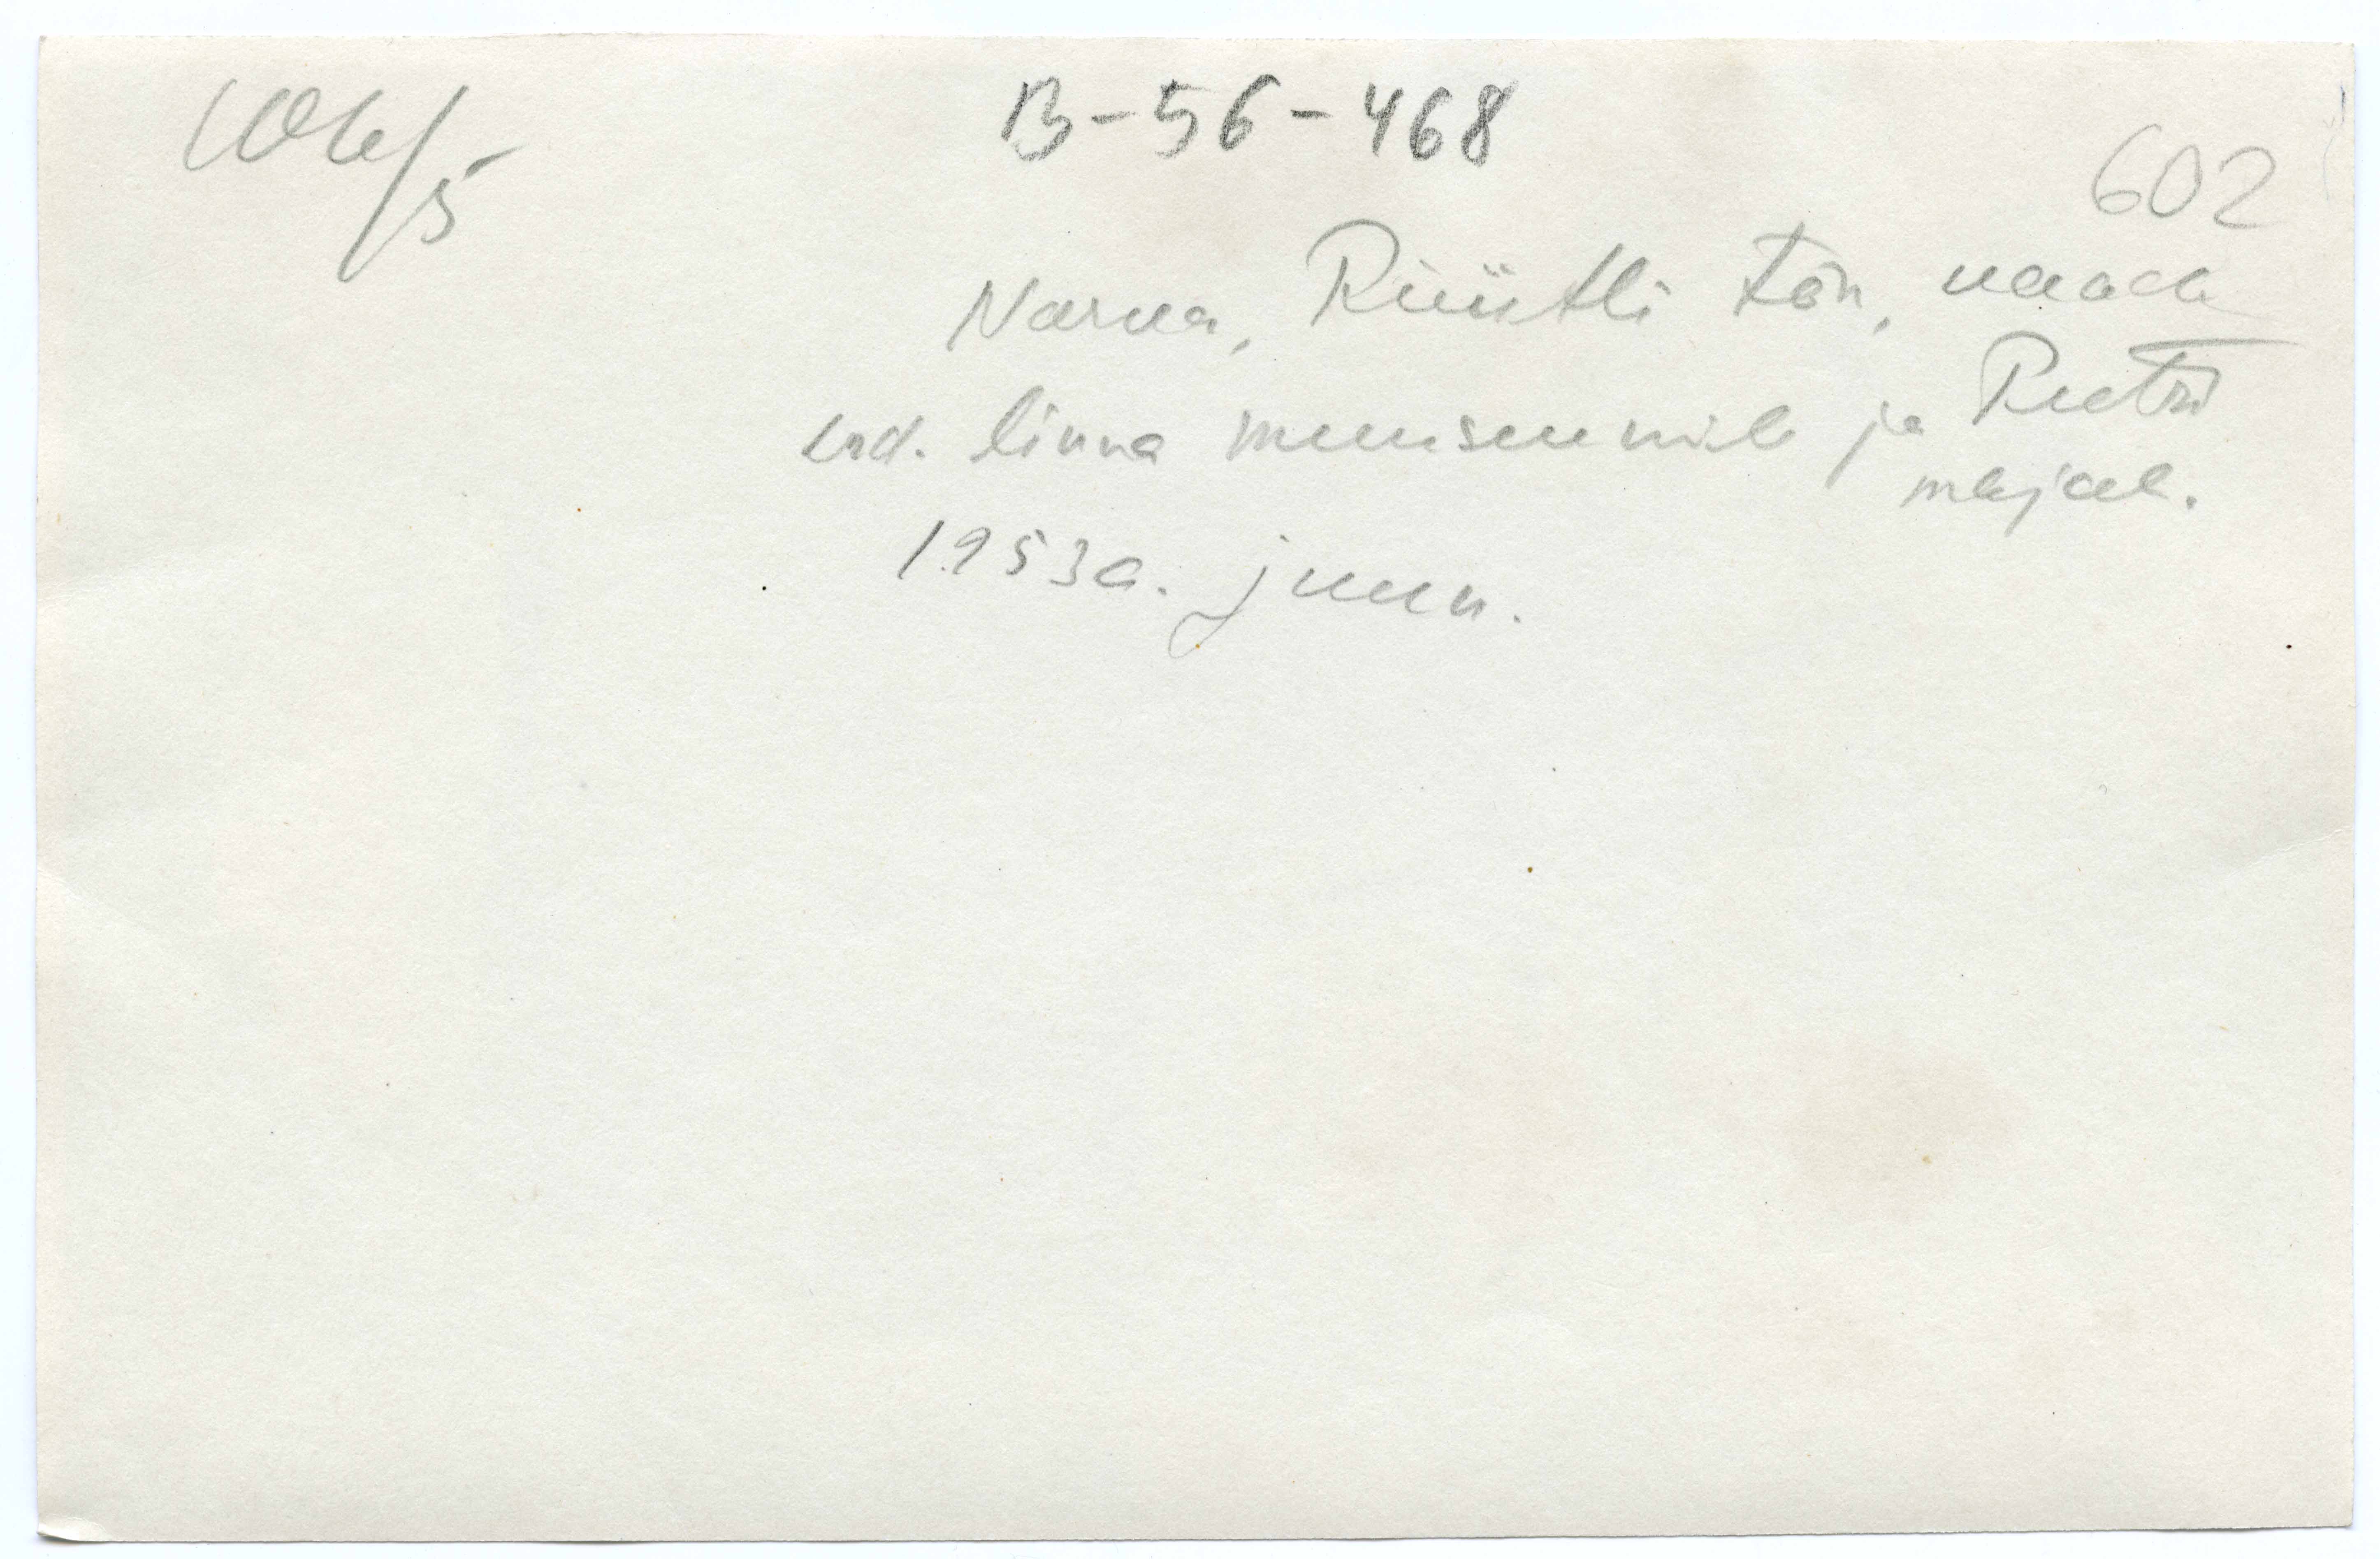 B-56-468
602
Narva, Rüütli tän, vaade
end. linna muuseumile ja Peetri
majal.
1953a. juuni.